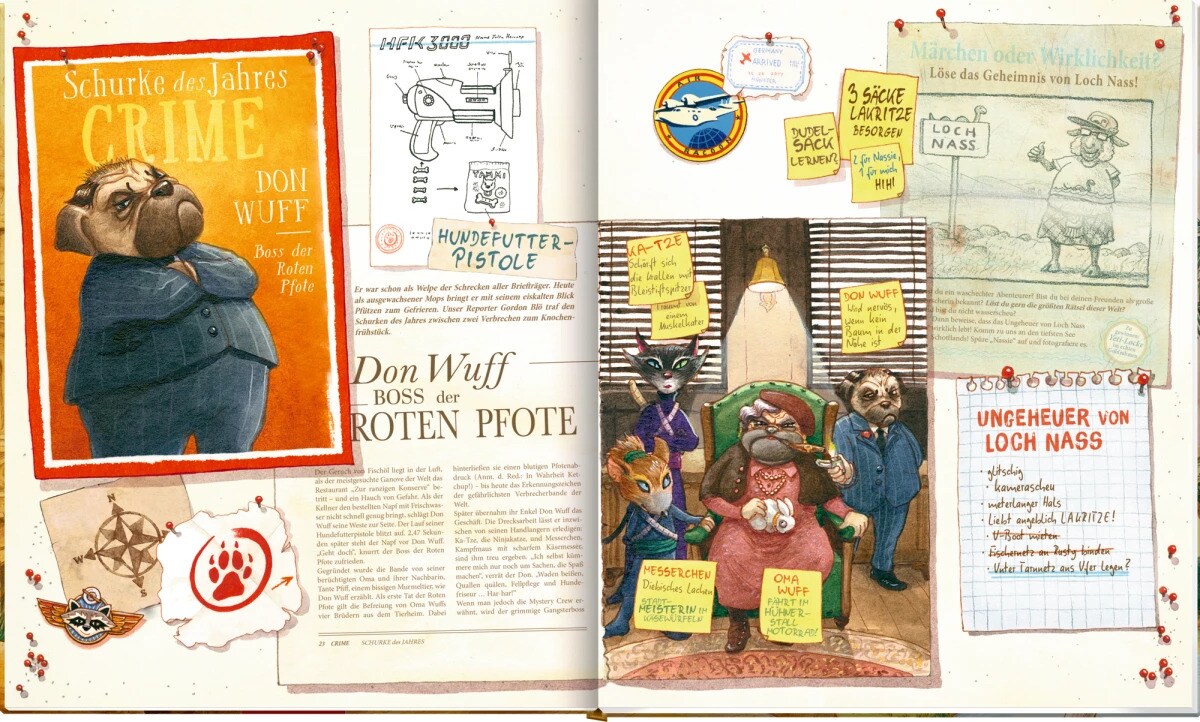 Schurke des Jahres
CRIME
DON
WUFF
Boss der
Roten
Pfote
HFK 3000
YAMMI
HUNDEFUTTER-
PISTOLE
Er war schon als Welpe der Schrecken aller Briefträger. Heute
als ausgewachsener Mops bringt er mit seinem eiskalten Blick
Pfützen zum Gefrieren. Unser Reporter Gordon Blö traf den
Schurken des Jahres zwischen zwei Verbrechen zum Knochen-
frühstück.
Don Wuff
BOSS der
ROTEN PFOTE
Der Geruch von Fischöl liegt in der Luft,
als der meistgesuchte Ganove der Welt das
Restaurant „Zur ranzigen Konserve“ be-
tritt – und ein Hauch von Gefahr. Als der
Kellner den bestellten Napf mit Frischwas-
ser nicht schnell genug bringt, schlägt Don
Wuff seine Weste zur Seite. Der Lauf seiner
Hundefutterpistole blitzt auf. 2,47 Sekun-
den später steht der Napf vor Don Wuff.
„Geht doch“, knurrt der Boss der Roten
Pfote zufrieden.
Gegründet wurde die Bande von seiner
berüchtigten Oma und ihrer Nachbarin,
Tante Pfiff, einem bissigen Murmeltier, wie
Don Wuff erzählt. Als erste Tat der Roten
Pfote gilt die Befreiung von Oma Wuffs
vier Brüdern aus dem Tierheim. Dabei
hinterließen sie einen blutigen Pfotenab-
druck (Anm. d. Red.: In Wahrheit Ket-
chup!) – bis heute das Erkennungszeichen
der gefährlichsten Verbrecherbande der
Welt.
Später übernahm ihr Enkel Don Wuff das
Geschäft. Die Drecksarbeit lässt er inzwi-
schen von seinen Handlangern erledigen:
Ka-Tze, die Ninjakatze, und Messerchen,
Kampfmaus mit scharfem Käsemesser,
sind ihm treu ergeben. „Ich selbst küm-
mere mich nur noch um Sachen, die Spaß
machen“, verrät der Don. „Waden beißen,
Quallen quälen, Fellpflege und Hunde-
friseur ... Har-har!“
Wenn man jedoch die Mystery Crew er-
wähnt, wird der grimmige Gangsterboss
23 CRIME SCHURKE des JAHRES
GERMANY
ARRIVED
AIR
RACOON
DUDEL-
SACK
LERNEN?
3 SÄCKE
LAKRITZE
BESORGEN
2 für Nessie,
1 für mich
HIHI
Märchen oder Wirklichkeit?
Löse das Geheimnis von Loch Nass!
LOCH
NASS
du ein waschechter Abenteurer? Bist du bei deinen Freunden als große
bekannt? Löst du gern die größten Rätsel dieser Welt?
bist du nicht wasserscheu?
Dann beweise, dass das Ungeheuer von Loch Nass
wirklich lebt! Komm zu uns an den tiefsten See
Schottlands! Spüre „Nessie“ auf und fotografiere es.
Yeti-Locke
KA-TZE
Schärft sich
die Krallen mit
Bleistiftspitzer
Träumt von
einem
Muskelkater
DON WUFF
Wird nervös,
wenn kein
Baum in der
Nähe ist
MESSERCHEN
Diebisches Lachen
STADT-
MEISTERIN IM
KÄSEWÜRFELN
OMA
WUFF
FÄHRT IM
HÜHNER-
STALL
MOTORRAD!
UNGEHEUER VON
LOCH NASS
· glitschig
· kamerascheu
· meterlanger Hals
· Liebt angeblich LAKRITZE!
· U-Boot mieten
· Fischernetz an Rusty binden
· Unter Tarnnetz ans Ufer legen?